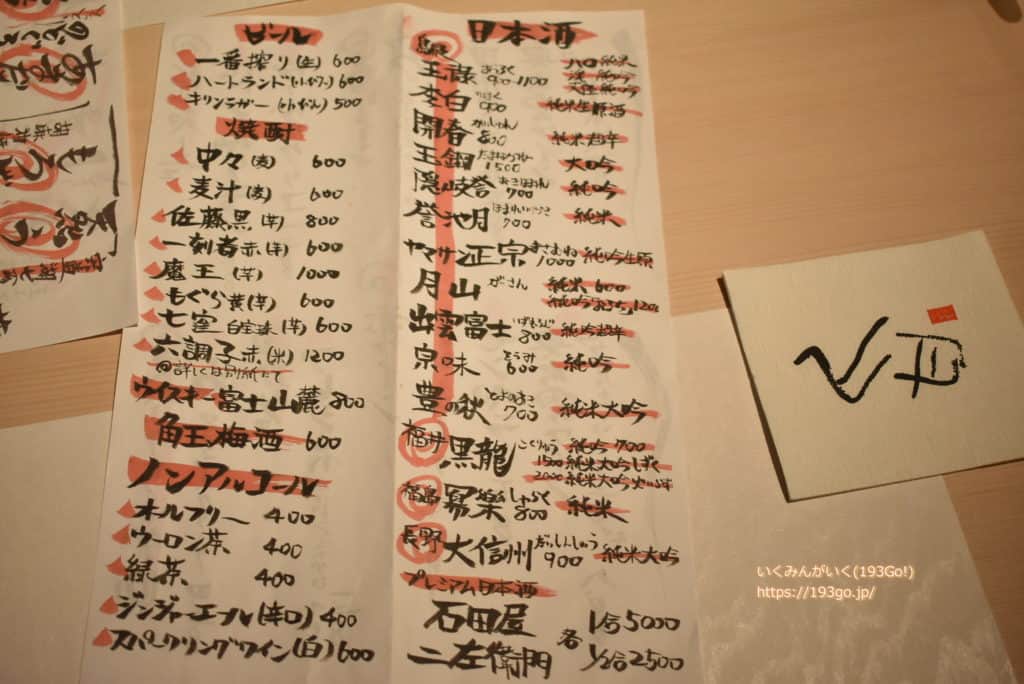 ビール
一番搾り(生) 600
ハートランド 600
キリンラガー 500
焼酎
中々(麦) 600
麦汁(麦) 600
佐藤黒(芋) 800
一刻者赤(芋) 600
魔王(芋) 1000
もぐら(芋) 600
七窪 (芋) 600
六調子赤(米) 1200
@詳しくは別紙にて
ウイスキー富士山麓 800
角玉梅酒 600
ノンアルコール
オールフリー 400
ウーロン茶 400
緑茶 400
ジンジャーエール(辛口) 400
スパークリングワイン(白) 600
日本酒
島根
王祿 おうろく 900~1100
李白 りはく 900 純米生原酒
開春 かいしゅん 800 純米超辛
玉鋼 たまはがね 1500 大吟
隠岐誉 おきほまれ 700 純吟
誉池月 700 純米
ヤマサン正宗 まさむね 1000 純吟生原
月山 がさん 純米 600
出雲富士 いずもふじ 800 純吟超辛
宗味 そうみ 600 純吟
豊の秋 とよのあき 700 純米大吟
福井 黒龍 こくりゅう 純吟 700
1500 純米大吟しずく
2000 純米大吟火いら寿
福島 冩樂 しゃらく 800 純米
長野 大信州 だいしんしゅう 900 純米大吟
プレミアム日本酒
石田屋
二左衛門
各 1合 5000
1/2合 2500
いくみんがいく(193Go!)
https://193go.jp/